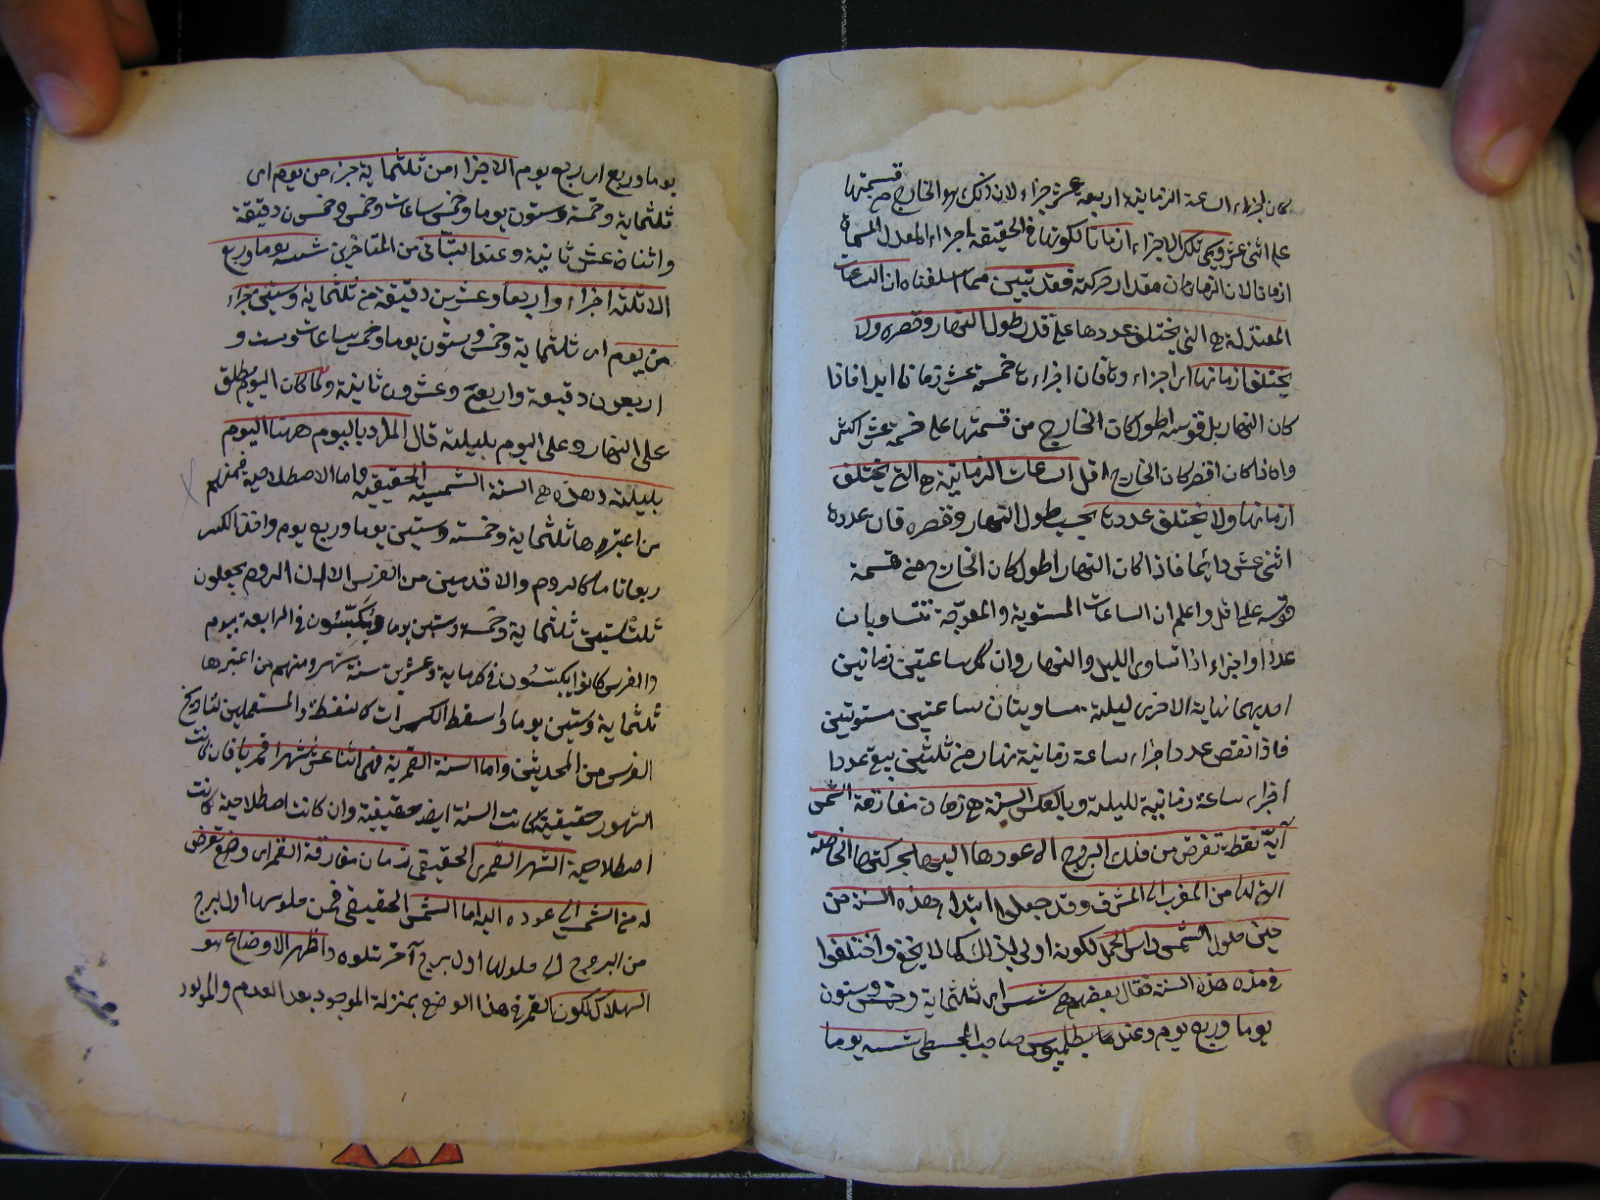 كان اجزاء الساعة الزمانية اربعة عشر جزاء لان ذلك هو الخارج من قسمتها
على اثنى عشر ويسمى تلك الاجزاء ازمانا لكونها فى الحقيقة اجزاء المعدل المسماة
ازمانا لان الزمان مقدار حركته فقد تبين مما اسلفناه ان الساعات
المعتدلة هى التى يختلف عددها على قدر طول النهار وقصره ولا
يختلف ازمانها اى اجزاء فان اجزاء خمسة عشر زمانا ابدا فاذا
كان النهار بل قوسه اطول كان الخارج من قسمتها على خمسة عشر اكثر
واذا كان اقصر كان الخارج اقل الساعات الزمانية هى التى يختلف
ازمانها ولا يختلف عددها بحسب طول النهار وقصره فان عدده
اثنى عشر دائما فاذا كان النهار اطول كان الخارج من قسمة
قوسه على اقل واعلم ان الساعات المستوية والمعوجة تتساويان
عددا واجزاء اذا تساوى الليل والنهار وان كل ساعتين زمانيتين
احديهما نهارية الاخرى ليلية مساويتان ساعتين مستويتين
فاذا نقص عدد اجزاء ساعة زمانية نهار من ثلثين بقى عدد
اجزاء ساعة زمانية لليلة وبالعكس السنة هى زمان مفارقة الشمس
آية نقطة تفرض من فلك البروج الى عودها اليها بحركتها الخاصة
التى لها من المغرب الى المشرق وقد جعلوا ابتداء هذه السنة من
حين حلول الشمس راس الحمل لكونه اولى بذلك كما لا يخفى واختلفوا
فى مدة هذه السنة فقال بعضهم هى شسه اى ثلثماية وخمس وستون
يوما وربع يوم وعند بطلميوس صاحب المجسطى شسه يوما
يوما وربع اى ربع يوم الا جزاء من ثلثماية جزء من يوم اى
ثلثماية وخمسة وستون يوما وخمس ساعات وخمس وخمسون دقيقة
واثنتا عشر ثانية وعند البتانى من المتاخرين شسه يوما وربع
الا ثلثة اجزاء واربعا وعشرين دقيقة من ثلثماية وستين جزاء
من يوم اى ثلثماية وخمس وستون يوما وخمس ساعات وست و
اربعون دقيقة واربع وعشرون ثانية ولما كان اليوم يطلق
على النهار وعلى اليوم بليلته قال المراد باليوم ههنا اليوم
بليلته وهذه هى السنة الشمسية الحقيقية واما الاصطلاحية فمنهم
من اعتبرها ثلثماية وخمسة وستين يوما وربع يوم واخذ الكسر
ربعا تاما كالروم والاقدمين من الفرس الا ان الروم يجعلون
ثلث سنين ثلثماية وخمسة وستين يوما ويكبسون فى الرابعة بيوم
والفرس كانوا يكبسون فى كل ماية وعشرين سنة بشهر ومنهم من اعتبرها
ثلثماية وستين يوما واسقط الكسر والمستعملين لتاريخ
الفرس من المحدثين واما السنة القمرية فهى اثنا عشر شهرا قمريا فان كانت
الشهور حقيقية كانت السنة ايضا حقيقية وان كانت اصطلاحية كانت
اصطلاحية الشهر القمرى الحقيقى زمان مفارقة القمر اى وضع تعرض
له من الشمس الى عوده اليه اما الشمس الحقيقى فمن حلوسها اول برج
من البروج الى حلولها اول برج آخر تتلوه واظهر الاوضاع هو
الهلال لكون القمر فى هذا الوضع بمنزلة الموجود بعد العدم والمولود